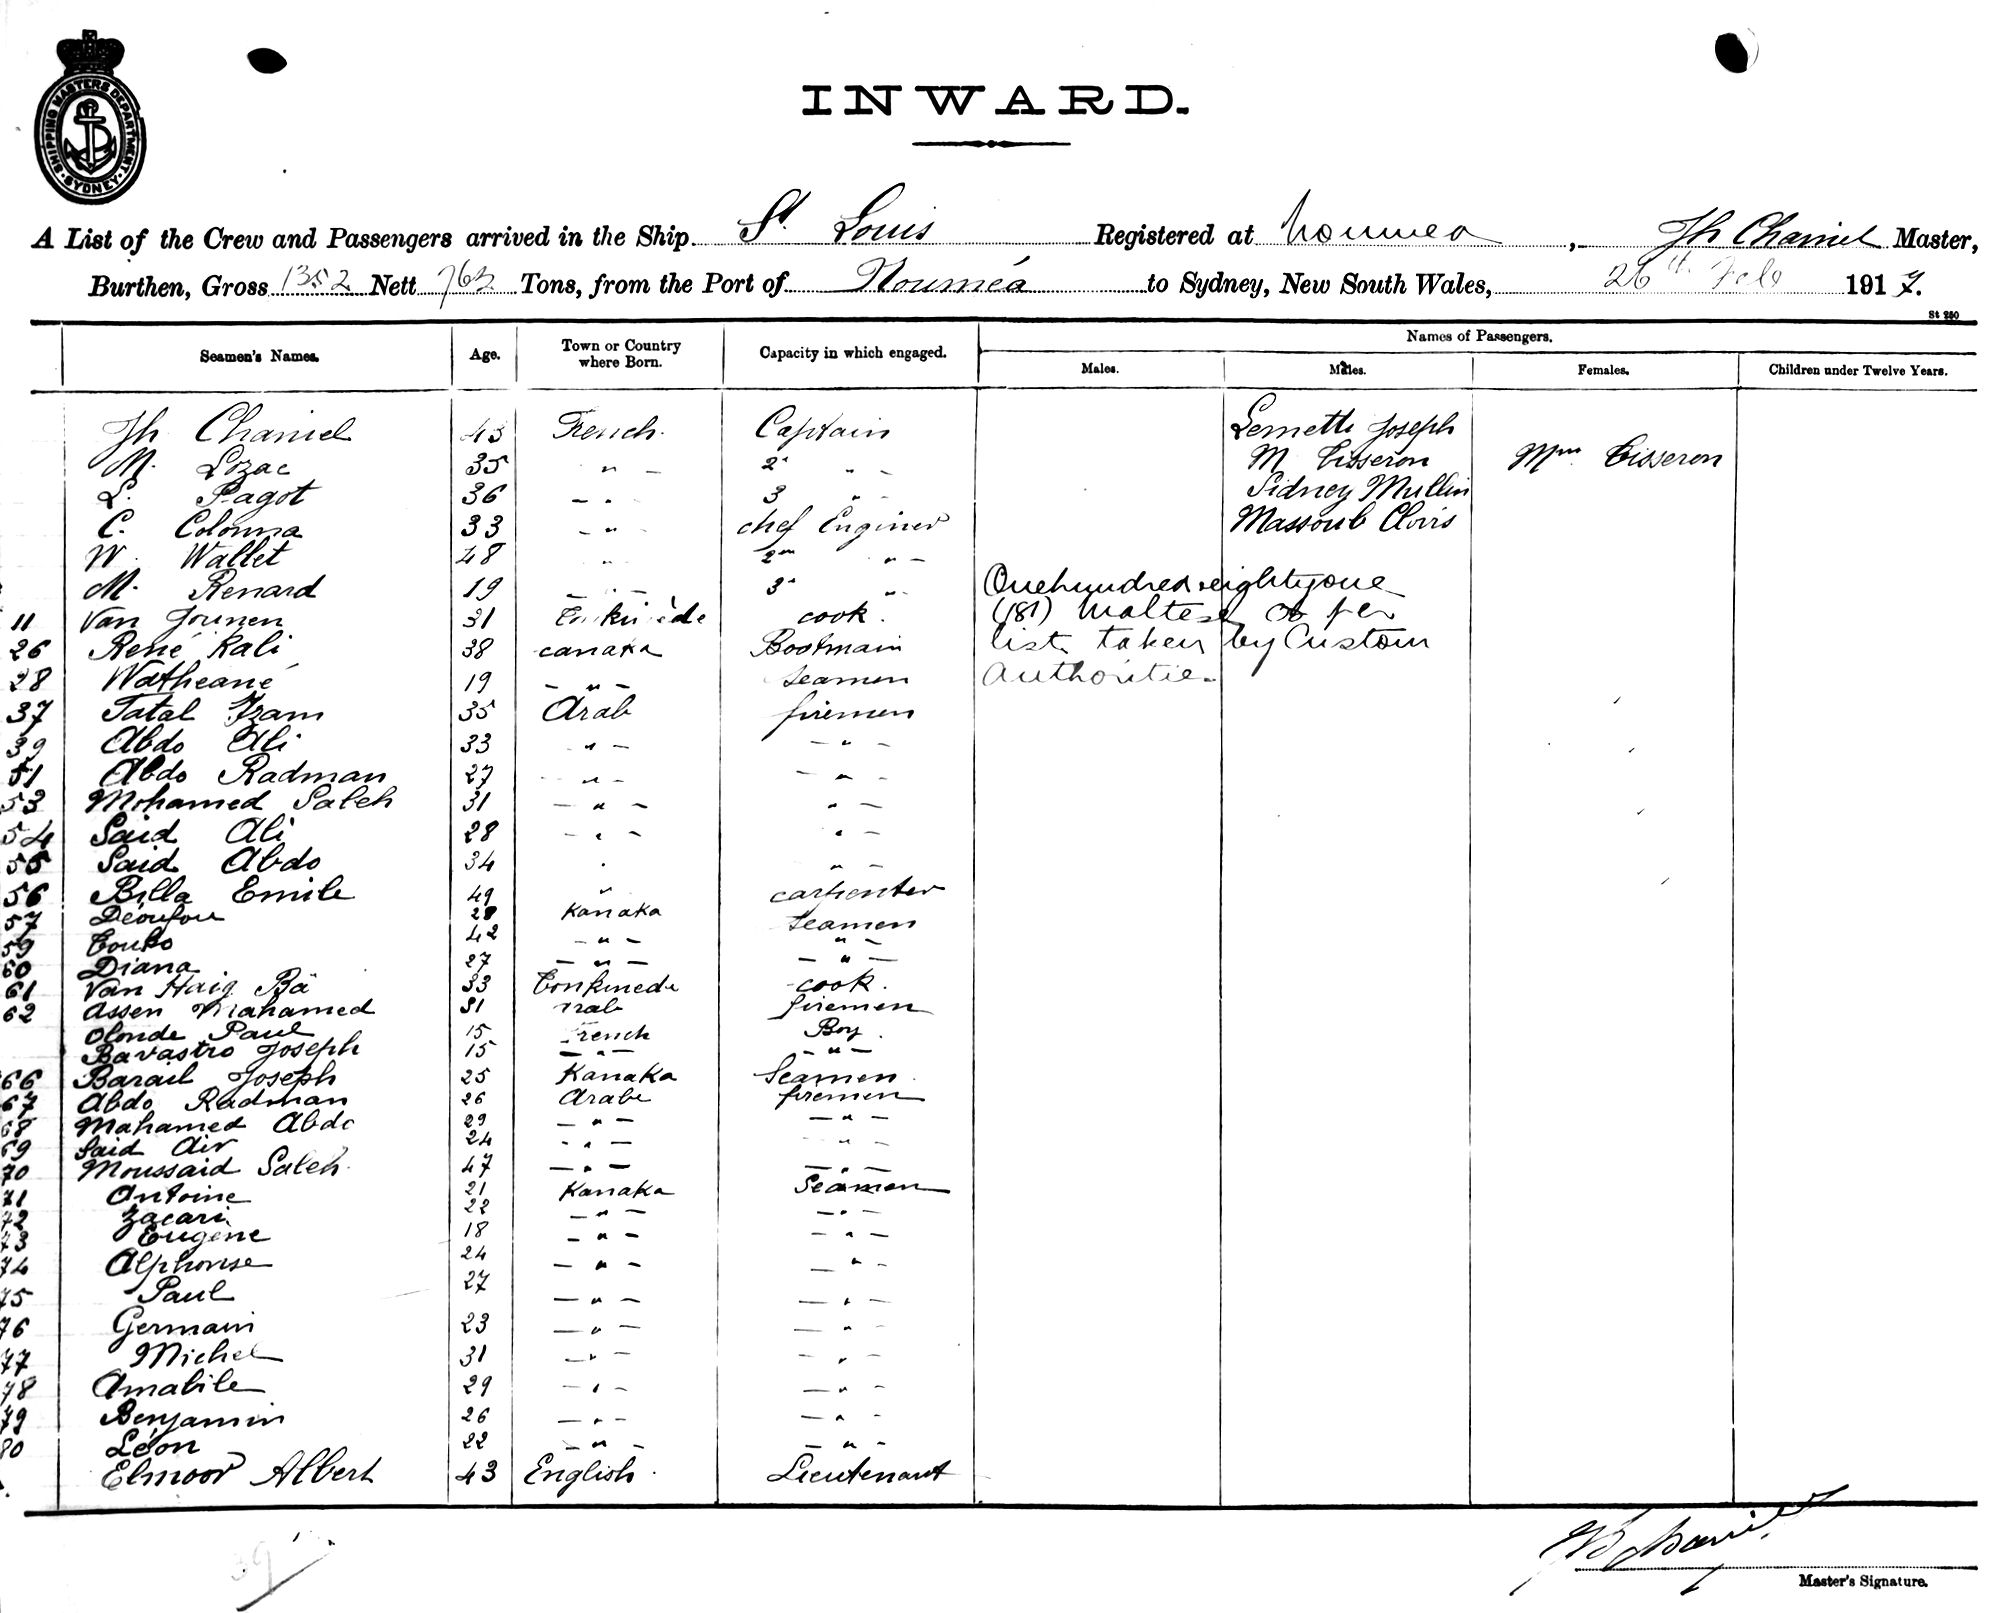 SHIPPING MASTERS DEPARTMENT. SYDNEY.
INWARD.
A List of the Crew and Passengers arrived in the Ship St. Louis Registered at Noumea, Jh Chaniel Master,
Burthen, Gross 1352 Nett 763 Tons, from the Port of Nouméa to Sydney, New South Wales, 26th Feb 1917.
St 250
Seamen's Names. Age. Town or Country where Born. Capacity in which engaged. Names of Passengers.
Males. Males. Females. Children under Twelve Years.
Jh Chaniel 43 French. Captain Lemetti Joseph
M. Lozac 35 " - 2e " - M Tisseron Mme Tisseron
L. Pagot 36 - " 3 " - Sidney Mullin
C. Colonna 33 - " - chef Enginer Massoub Clovis
W. Wallet 48 " 2em " -
M. Renard 19 - " - 3e " One hundred eighty one
11 Van Jounen 31 cook. (181) Maltese as per
26 René Kali 38 canaka Bootmain list taken by Custom
28 Watheané 19 - " - Seamen Authoritie.
37 Tatal Izam 35 Arab firemen
39 Abdo Ali 33 " - - " -
51 Abdo Radman 27 - " - - " -
53 Mohamed Saleh 31 - " - " -
54 Said Ali 28 - " - " -
55 Said Abdo 34 " " -
56 Billa Emile 49 " carpenter
57 Déoufou 28 Kanaka Seamen
59 Touko 42 - " - " -
60 Diana 27 - " - - " -
61 Van Haig Bä 33 Tonkinede cook.
62 Assen Mahamed 31 Arab firemen
Olonde Paul 15 French Boy.
Bavastro Joseph 15 - " - - " -
66 Barail Joseph 25 Kanaka Seamen.
67 Abdo Radman 26 Arabe firemen
68 Mahamed Abdo 29 - " - - " -
69 Said Air 24 - " - " -
70 Moussaid Saleh. 47 - " - - " -
71 Antoine 21 Kanaka Seamen
72 Zacari 22 - " - - " -
73 Eugène 18 - " - - " -
74 Alphonse 24 - " - - " -
75 Paul 27 - " - - " -
76 Germain 23 - " - - " -
77 Michel 31 - " - - " -
78 Amabile 29 - " - - " -
79 Benjamin 26 - " - - " -
80 Léon 22 - " - - " -
Elmoor Albert 43 English. Lieutenant
39
Master's Signature.